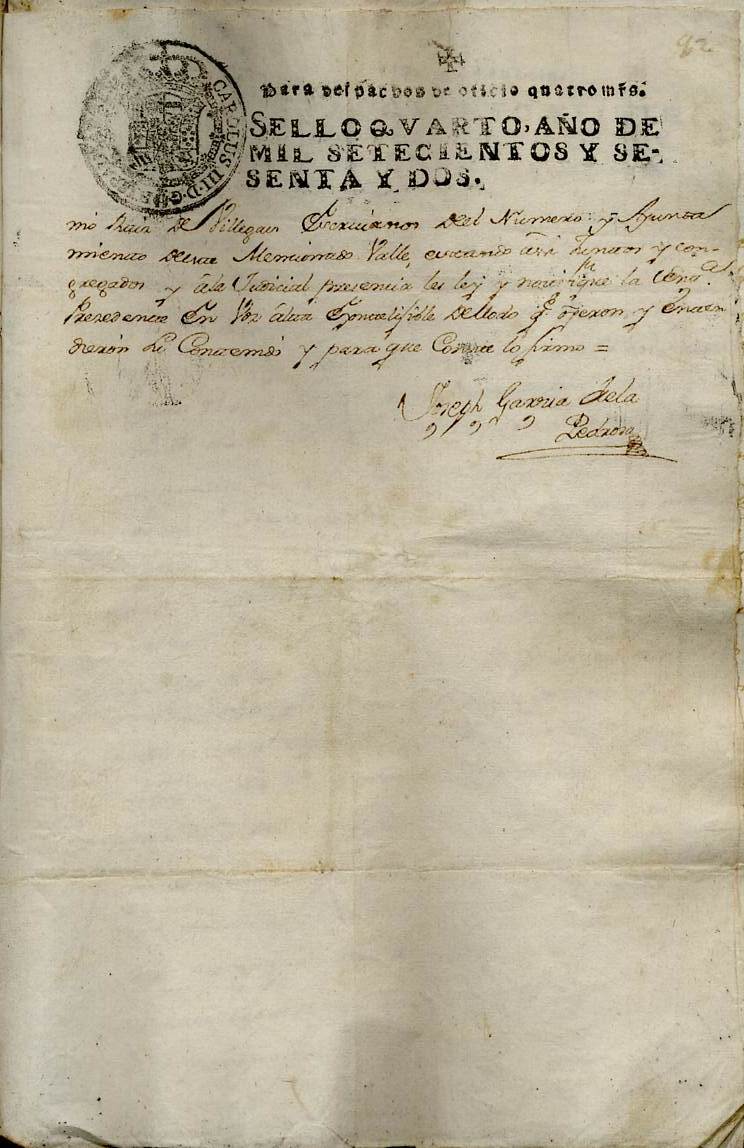 92
Para despachos de oficio quatro mrs.
SELLO QVARTO, AÑO DE
MIL SETECIENTOS Y SE-
SENTA Y DOS.
CAROLUS III D G
mo Ruiz de Villegas Escrivanos del Numero y Ayunta
miento deste Mencionado Valle, estando assi Juntos y con-
gregados y a la Judicial presencia les ley y notifiqué la
Prezedente En Voz alta de todo qe oyeron y Enten
dieron su Contenido y para que Conste lo firmo =
Joseph Garzia dela
Pedrosa